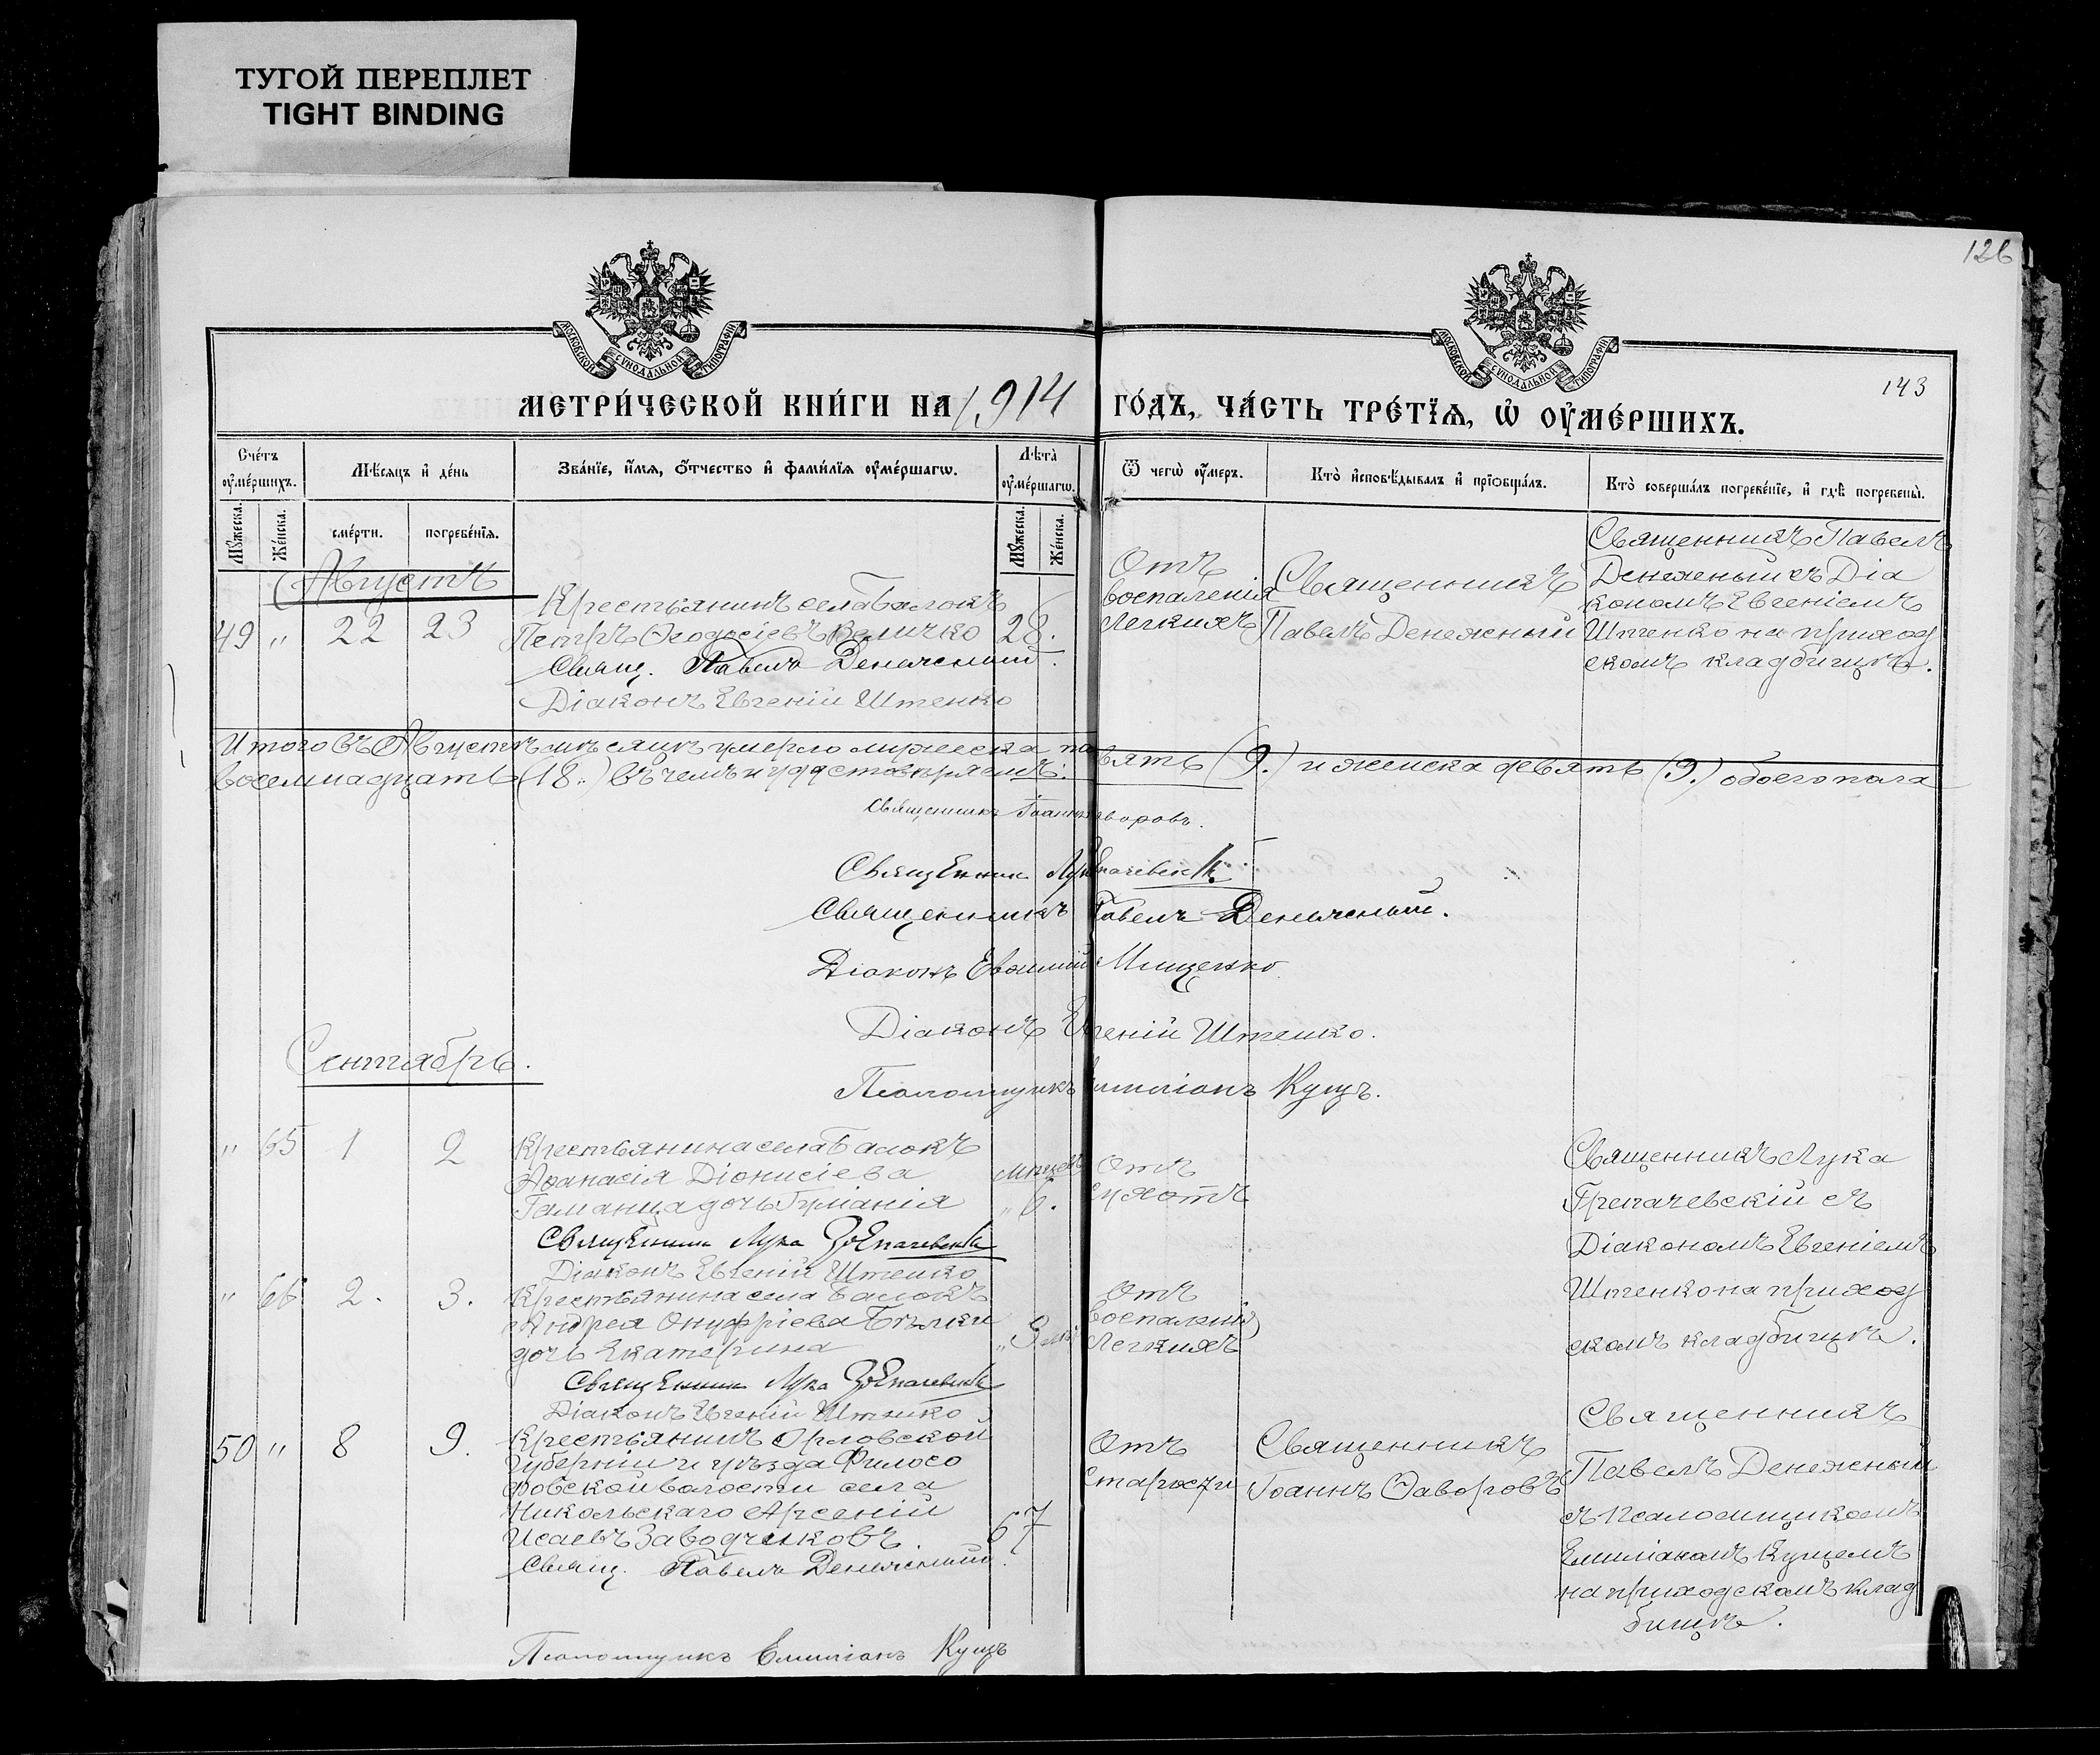 ТУГОЙ ПЕРЕПЛЕТ
TIGHT BINDING
126
143
МОСКОВСКОЙ СѴНОДАЛЬНОЙ ТИПОГРАФІИ
МОСКОВСКОЙ СѴНОДАЛЬНОЙ ТИПОГРАФІИ
МЕТРИ́ЧЕСКОЙ КНИ́ГИ НА 1914 ГО́ДЪ, ЧА́СТЬ ТРЕ́ТЇѦ, Ѡ҆ ОУ҆МЕ́РШИХЪ.
Сче́тъ оу҆ме́ршихъ.
Мꙋ́жеска.
Же́нска.
Мѣ́сѧцъ и҆ де́нь
сме́рти.
погребе́нїѧ.
Зва́нїе, и҆́мѧ, ѻ҆́тчество и҆ фами́лїѧ оу҆ме́ршагѡ.
Лѣ́та оу҆ме́ршагѡ.
Мꙋ́жеска.
Же́нска.
Ѿ чегѡ̀ оу҆́меръ.
Кто̀ и҆сповѣ́дывалъ и҆ прїѻбща́лъ.
Кто̀ соверша́лъ погребе́нїе, и҆ гдѣ̀ погребены̀.
Августъ
49 " 22 23
Крестьянинъ села Балокъ
Петръ Ѳеодосіевъ Величко 28.
Свящ. Павелъ Денежный.
Діаконъ Евгеній Штенко
Отъ
воспаленія
легкихъ
Священникъ
Павелъ Денежный
Священникъ Павелъ
Денежный съ Діа
кономъ Евгеніемъ
Штенко на приход
скомъ кладбищѣ.
Итого въ Августѣ мѣсяцѣ умерло мужеска девять (9.) и женска девять (9.) обоего пола
восемнадцать (18.) въ чемъ и удостовѣряемъ:
Священникъ Іоаннъ Ѳаворовъ.
Священникъ Лука Грепачевскій
Священникъ Павелъ Денежный.
Діаконъ Евѳимій Мищенко
Діаконъ Евгеній Штенко.
Псаломщикъ Емиліанъ Кущъ.
Сентябрь.
" 65 1 2
Крестьянина села Балокъ
Аѳанасія Діонисіева
Гаманца дочь
Священникъ Лука Грепачевскій
Діаконъ Евгеній Штенко
мѣсяц.
" 6.
Отъ
Священникъ Лука
Грепачевскій съ
Діакономъ Евгеніемъ
Штенко на приход
скомъ кладбищѣ.
" 66 2. 3.
Крестьянина села Балокъ
Андрея Онуфріева Бѣлки
дочь Екатерина
Священникъ Лука Грепачевскій
Діаконъ Евгеній Штенко
Отъ
воспаленія
легкихъ
50 " 8 9.
Крестьянинъ Орловской
губерніи и уѣзда Филосо
фовской волости села
Никольскаго Арсеній
Исаевъ Заводчиковъ. 67
Свящ. Павелъ Денежный.
Псаломщикъ Емиліанъ Кущъ
Отъ
старости
Священникъ
Іоаннъ Ѳаворовъ
Священникъ
Павелъ Денежный
съ псаломщикомъ
Емиліаномъ Кущемъ
на приходскомъ клад
бищѣ.